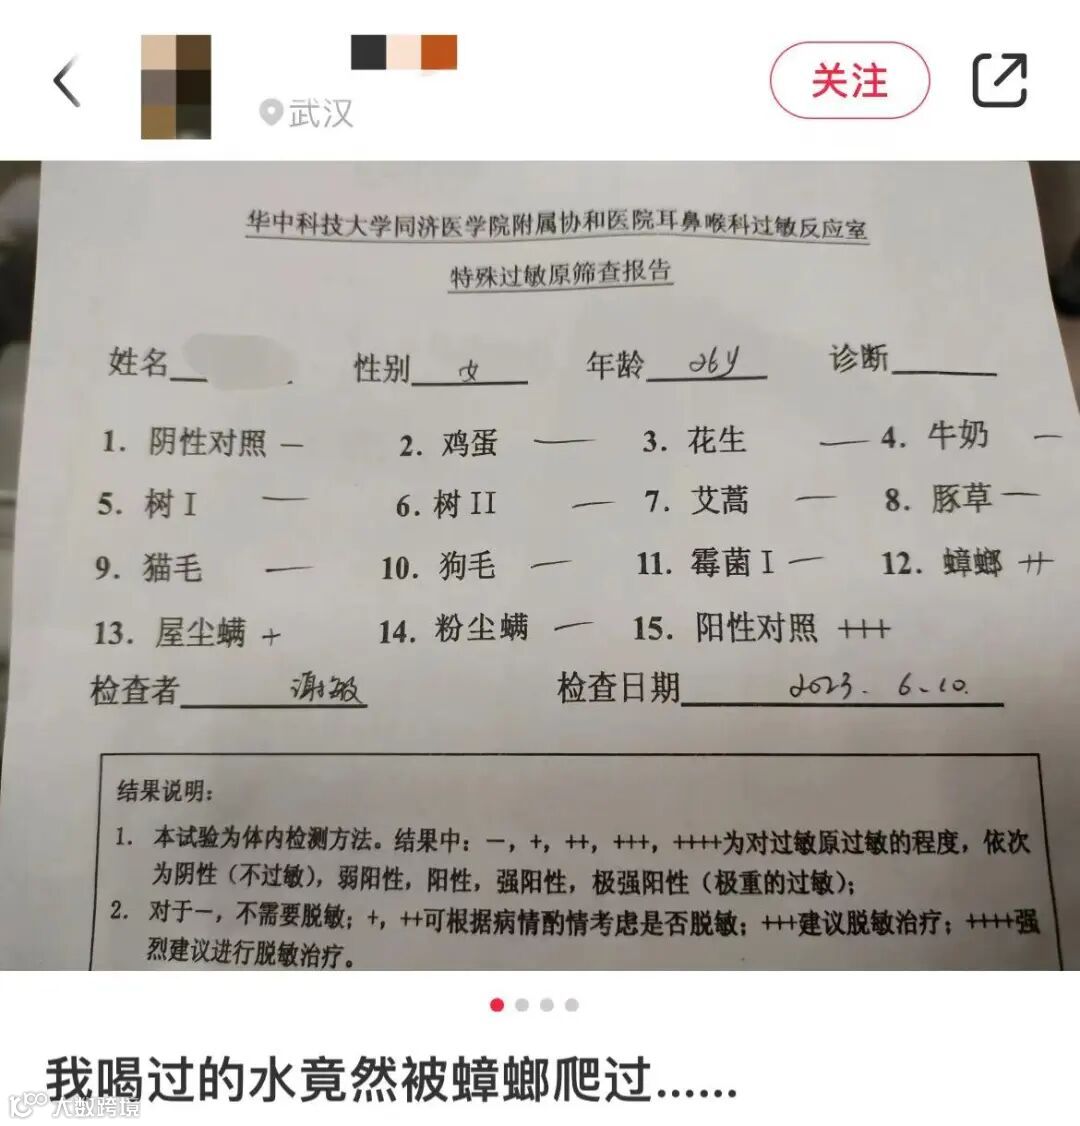 武汉
关注
华中科技大学同济医学院附属协和医院耳鼻喉科过敏反应室
特殊过敏原筛查报告
姓名 性别 女 年龄 26y 诊断
1. 阴性对照 — 2. 鸡蛋 — 3. 花生 — 4. 牛奶 —
5. 树I — 6. 树II — 7. 艾蒿 — 8. 豚草 —
9. 猫毛 — 10. 狗毛 — 11. 霉菌I — 12. 蟑螂 ++
13. 屋尘螨 + 14. 粉尘螨 — 15. 阳性对照 +++
检查者 谢敏 检查日期 2023. 6.10.
结果说明:
1. 本试验为体内检测方法。结果中: —, +, ++, +++, ++++为对过敏原过敏的程度, 依次
为阴性(不过敏), 弱阳性, 阳性, 强阳性, 极强阳性(极重的过敏);
2. 对于—, 不需要脱敏; +, ++可根据病情酌情考虑是否脱敏; +++建议脱敏治疗; ++++强
烈建议进行脱敏治疗。
我喝过的水竟然被蟑螂爬过......
大数跨境